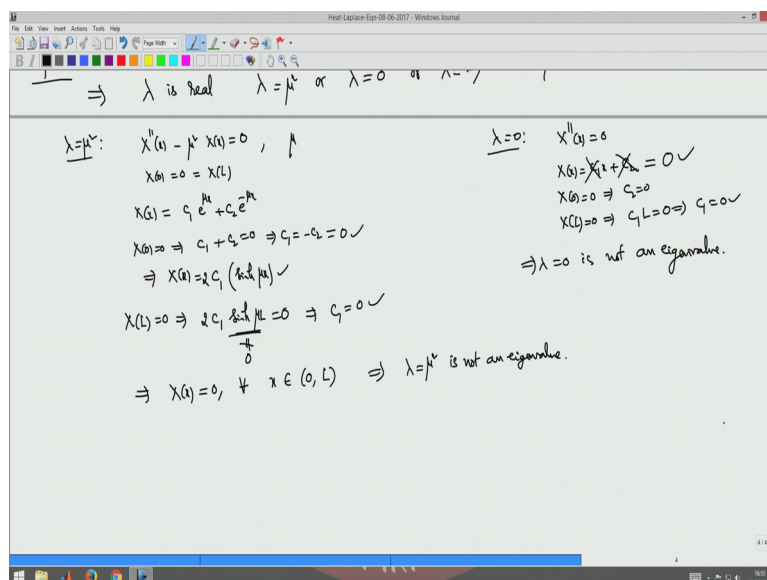 Heat-Laplace-Eqn-08-06-2017 - Windows Journal
File Edit View Insert Actions Tools Help
Page Width
B I
⇒ λ is real λ = μ² or λ = 0 or
λ=μ²: X''(x) - μ² X(x) = 0 , μ
X(0) = 0 = X(L)
X(x) = c₁ e^{μx} + c₂ e^{-μx}
X(0)=0 ⇒ c₁ + c₂ = 0 ⇒ c₁ = -c₂ = 0 ✓
⇒ X(x) = 2c₁ (sinh μx) ✓
X(L)=0 ⇒ 2c₁ sinh μL = 0 ⇒ c₁ = 0 ✓
≠
0
⇒ X(x) = 0, ∀ x ∈ (0, L) ⇒ λ = μ² is not an eigenvalue.
λ=0: X''(x) = 0
X(x) = c₁x + c₂ = 0 ✓
X(0)=0 ⇒ c₂=0
X(L)=0 ⇒ c₁L=0 ⇒ c₁=0 ✓
⇒ λ=0 is not an eigenvalue.
4/4
4
16:55